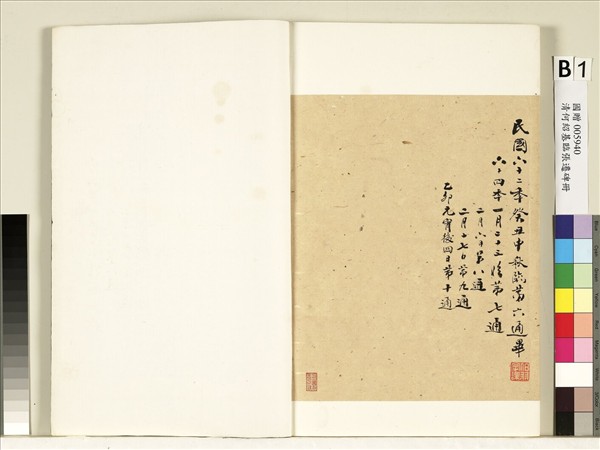 民國六十二年癸丑中秋臨第六通畢
六十四年一月二十三臨第七通
二月六日第八通
二月十七日第九通
乙卯元宵後四日第十通
B 1
國贈 005940
清何紹基臨張遷碑冊